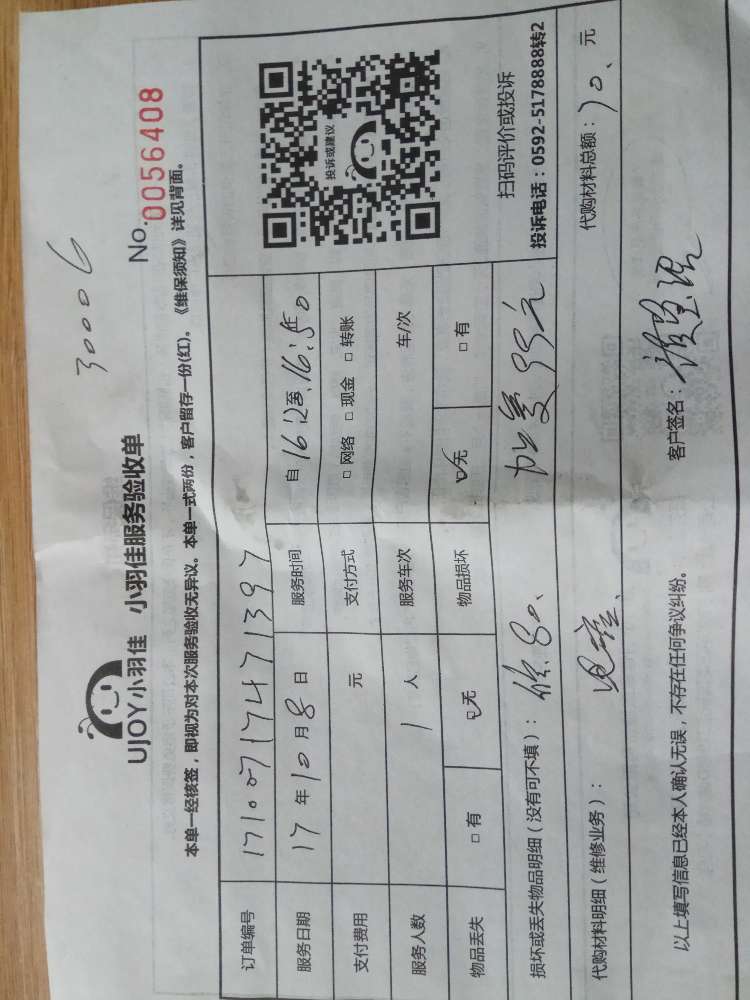 30006
UJOY小羽佳 小羽佳服务验收单 No. 0056408
本单一经核签，即视为对本次服务验收无异议。本单一式两份，客户留存一份(红)。《维保须知》详见背面。
订单编号 17100717471397
服务日期 17年10月8日 服务时间 自16:12至16:50
支付费用 元 支付方式 □网络 □现金 □转账
服务人数 1人 服务车次 车/次
物品丢失 □有 ☑无 物品损坏 ☑无 □有
投诉或建议
扫码评价或投诉
投诉电话：0592-5178888转2
损坏或丢失物品明细（没有可不填）： 80、 99元
代购材料明细（维修业务）： 代购材料总额：70、元
以上填写信息已经本人确认无误，不存在任何争议纠纷。 客户签名：